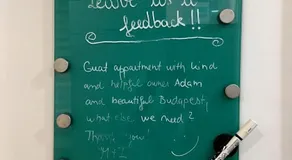 Leave us a
feedback!!
Great appartment with kind
and helpful owner Adam
and beautiful Budapest,
what else we need?
Thank you!